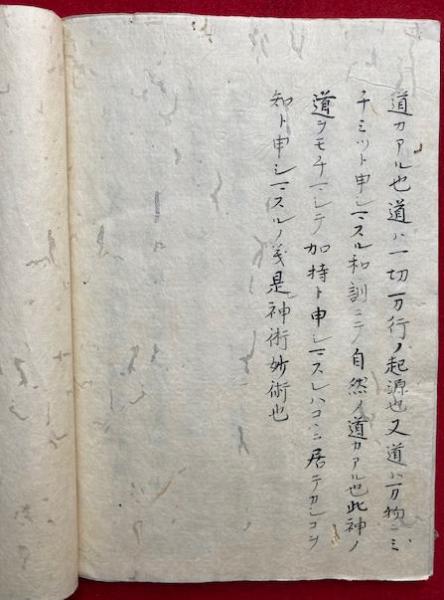 道カアル也道ハ一切万行ノ起源也又道ハ万物ニミ
チミツト申シマスル和訓ニテ自然ノ道カアル也此神ノ
道ヲモチマシテ加持ト申シマスレハコヽニ居テカシコヲ
知ト申シマスルノ義是神術妙術也